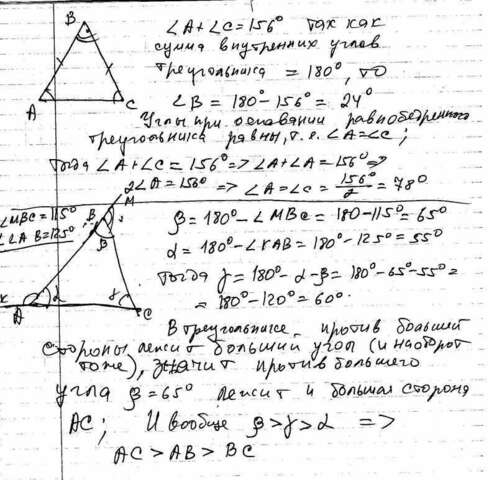 B
A
C
∠A+∠C=156° так как
сумма внутренних углов
треугольника = 180°, то
∠B = 180°-156° = 24°
Углы при основании равнобедренного
треугольника равны, т.е. ∠A=∠C;
Тогда ∠A+∠C=156°=>∠A+∠A=156°=>
2∠A=156° => ∠A=∠C= 156°/2 = 78°
∠MBC=115°
∠ AB=125°
M
B
β
α
γ
K
A
C
β=180°-∠MBC=180-115°=65°
α=180°-∠KAB=180°-125°=55°
Тогда γ=180°-α-β=180°-65°-55°=
=180°-120°=60°.
В треугольнике против большей
стороны лежит больший угол (и наоборот
тоже), значит против большего
угла β=65° лежит и большая сторона
AC; И вообще β>γ>α =>
AC>AB>BC